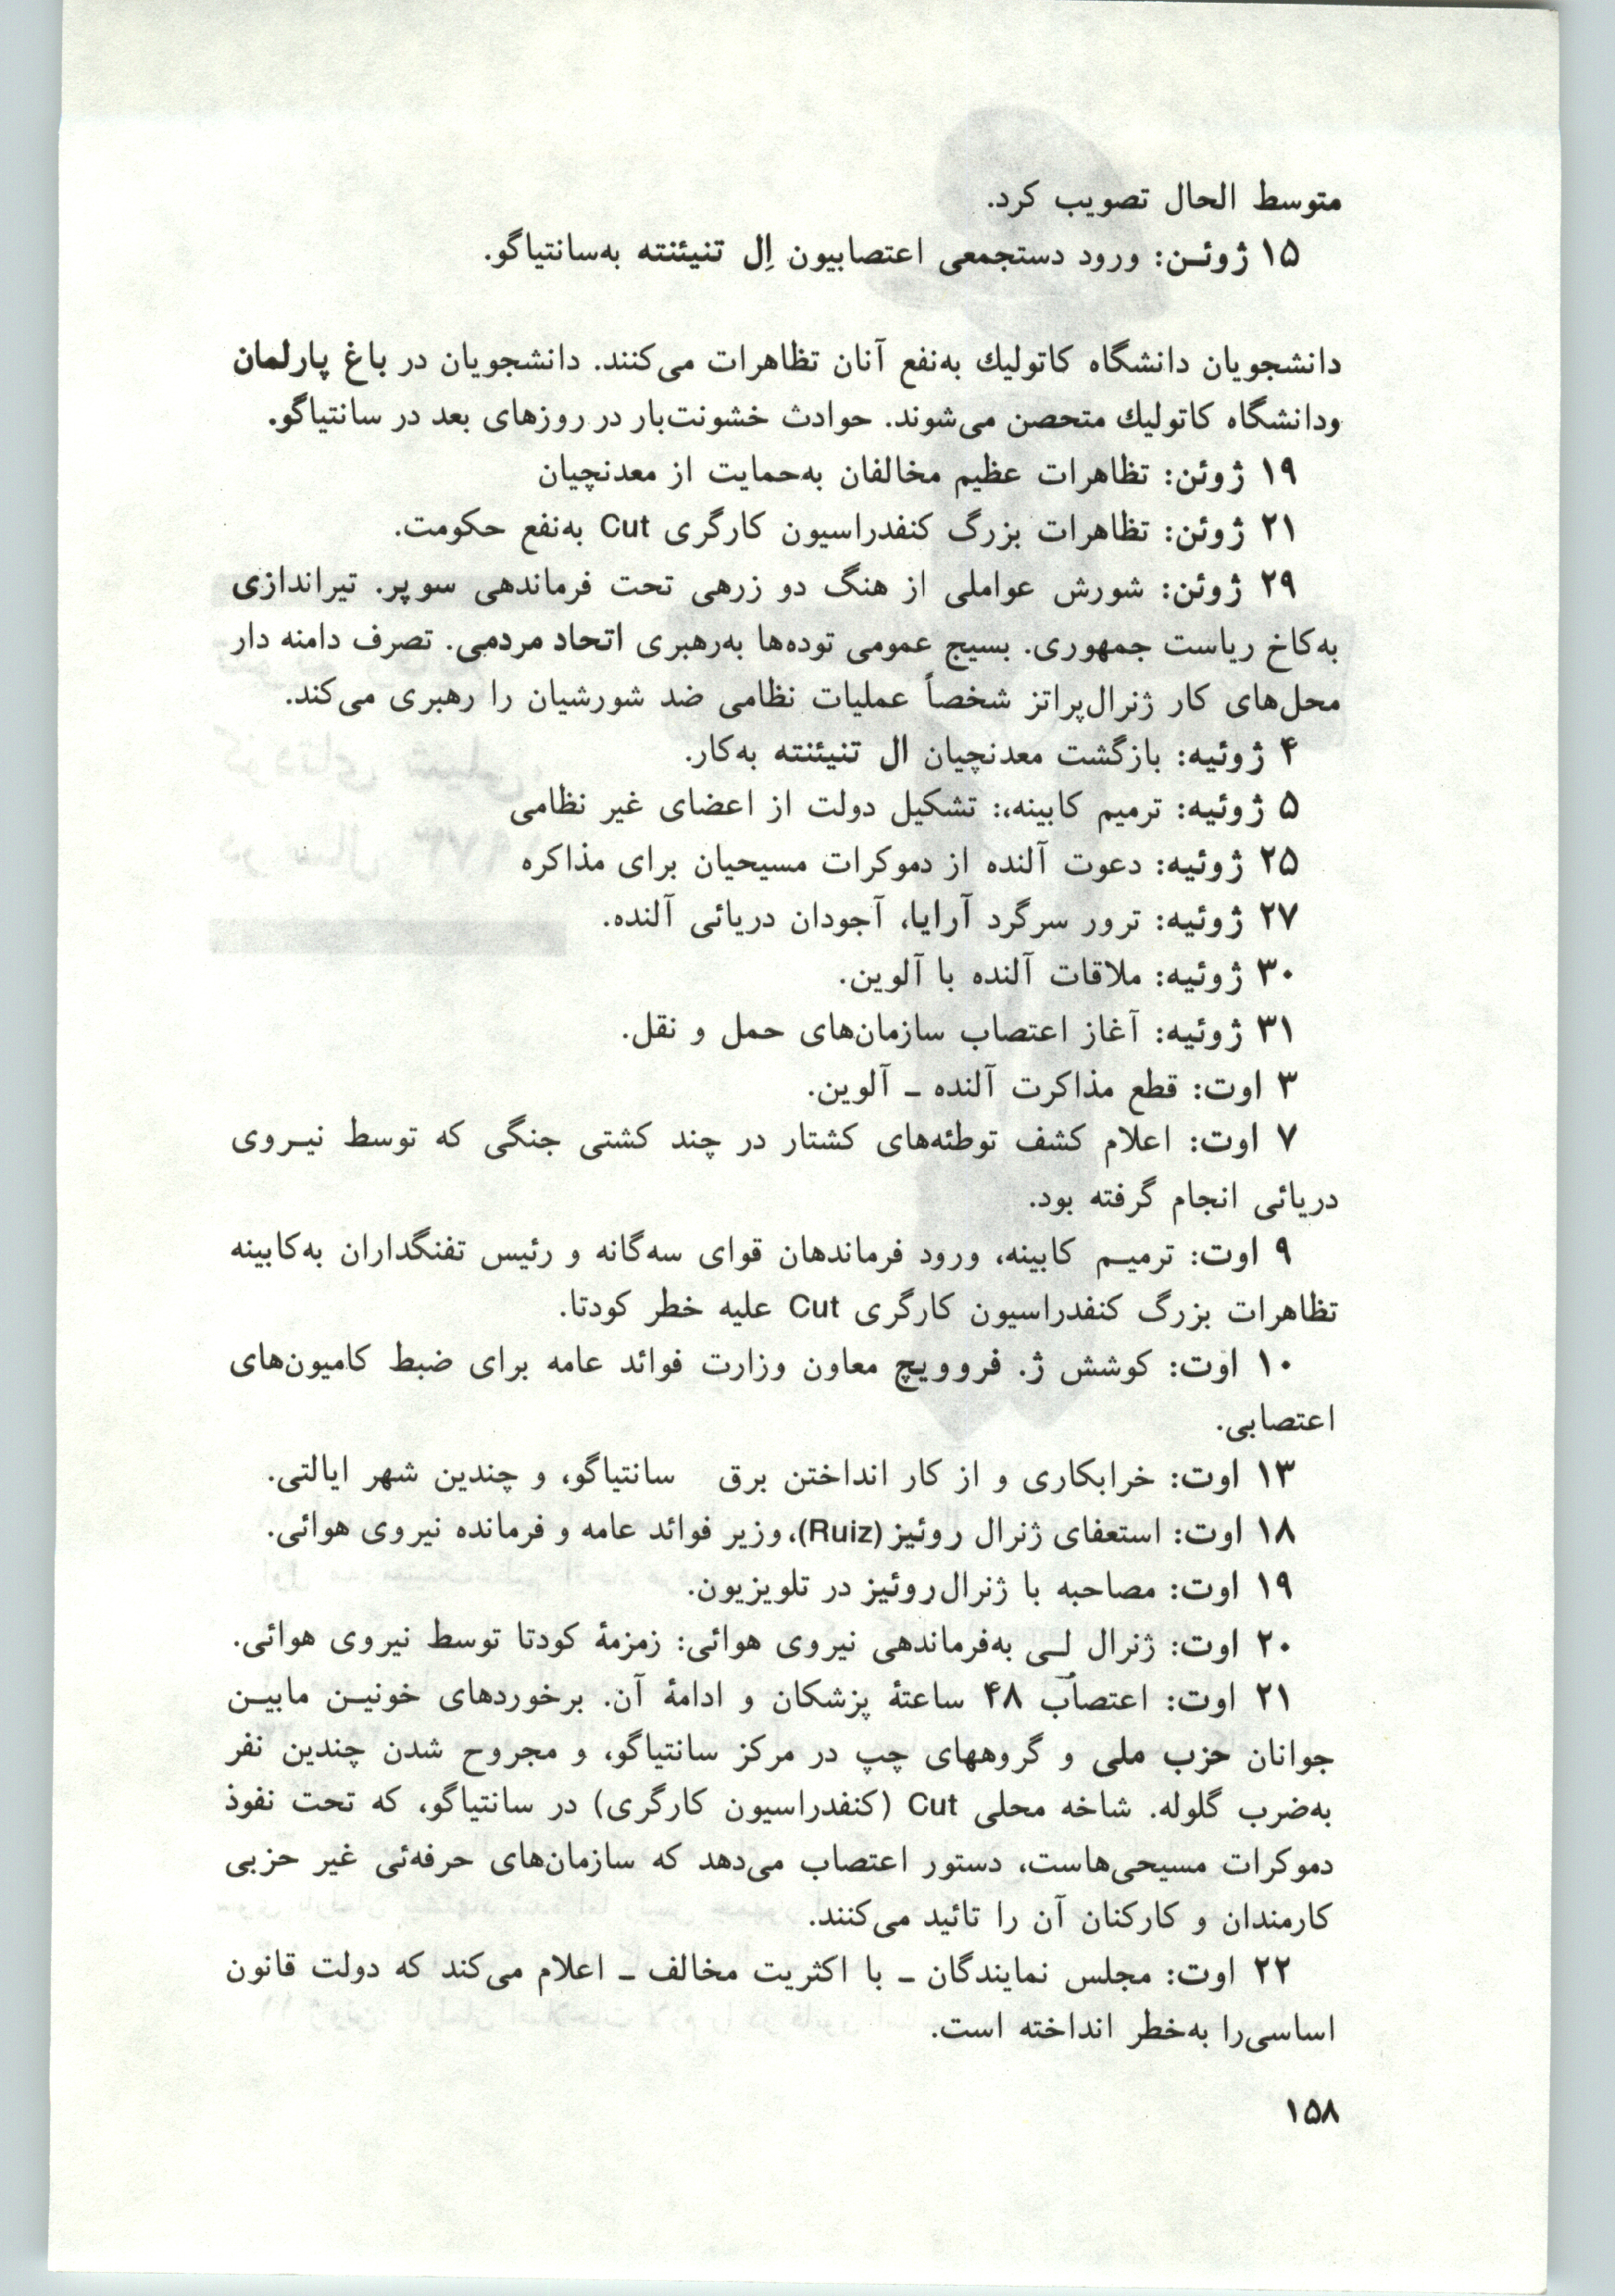 متوسط الحال تصویب کرد.
۱۵ ژوئـن: ورود دستجمعی اعتصابیون اِل تنیئنته به‌سانتیاگو.
دانشجویان دانشگاه کاتولیك به‌نفع آنان تظاهرات می‌کنند. دانشجویان در باغ پارلمان
ودانشگاه کاتولیك متحصن می‌شوند. حوادث خشونت‌بار در روزهای بعد در سانتیاگو.
۱۹ ژوئن: تظاهرات عظیم مخالفان به‌حمایت از معدنچیان
۲۱ ژوئن: تظاهرات بزرگ کنفدراسیون کارگری Cut به‌نفع حکومت.
۲۹ ژوئن: شورش عواملی از هنگ دو زرهی تحت فرماندهی سوپر. تیراندازی
به‌کاخ ریاست جمهوری. بسیج عمومی توده‌ها به‌رهبری اتحاد مردمی. تصرف دامنه دار
محل‌های کار ژنرال‌پراتز شخصاً عملیات نظامی ضد شورشیان را رهبری می‌کند.
۴ ژوئیه: بازگشت معدنچیان ال تنیئنته به‌کار.
۵ ژوئیه: ترمیم کابینه،: تشکیل دولت از اعضای غیر نظامی
۲۵ ژوئیه: دعوت آلنده از دموکرات مسیحیان برای مذاکره
۲۷ ژوئیه: ترور سرگرد آرایا، آجودان دریائی آلنده.
۳۰ ژوئیه: ملاقات آلنده با آلوین.
۳۱ ژوئیه: آغاز اعتصاب سازمان‌های حمل و نقل.
۳ اوت: قطع مذاکرت آلنده ـ آلوین.
۷ اوت: اعلام کشف توطئه‌های کشتار در چند کشتی جنگی که توسط نیـروی
دریائی انجام گرفته بود.
۹ اوت: ترمیـم کابینه، ورود فرماندهان قوای سه‌گانه و رئیس تفنگداران به‌کابینه
تظاهرات بزرگ کنفدراسیون کارگری Cut علیه خطر کودتا.
۱۰ اوت: کوشش ژ. فروویچ معاون وزارت فوائد عامه برای ضبط کامیون‌های
اعتصابی.
۱۳ اوت: خرابکاری و از کار انداختن برق سانتیاگو، و چندین شهر ایالتی.
۱۸ اوت: استعفای ژنرال روئیز (Ruiz)، وزیر فوائد عامه و فرمانده نیروی هوائی.
۱۹ اوت: مصاحبه با ژنرال‌روئیز در تلویزیون.
۲۰ اوت: ژنرال لـی به‌فرماندهی نیروی هوائی: زمزمهٔ کودتا توسط نیروی هوائی.
۲۱ اوت: اعتصاب ۴۸ ساعتهٔ پزشکان و ادامهٔ آن. برخوردهای خونیـن مابیـن
جوانان حزب ملی و گروههای چپ در مرکز سانتیاگو، و مجروح شدن چندین نفر
به‌ضرب گلوله. شاخه محلی Cut (کنفدراسیون کارگری) در سانتیاگو، که تحت نفوذ
دموکرات مسیحی‌هاست، دستور اعتصاب می‌دهد که سازمان‌های حرفه‌ئی غیر حزبی
کارمندان و کارکنان آن را تائید می‌کنند.
۲۲ اوت: مجلس نمایندگان ـ با اکثریت مخالف ـ اعلام می‌کند که دولت قانون
اساسی‌را به‌خطر انداخته است.
۱۵۸